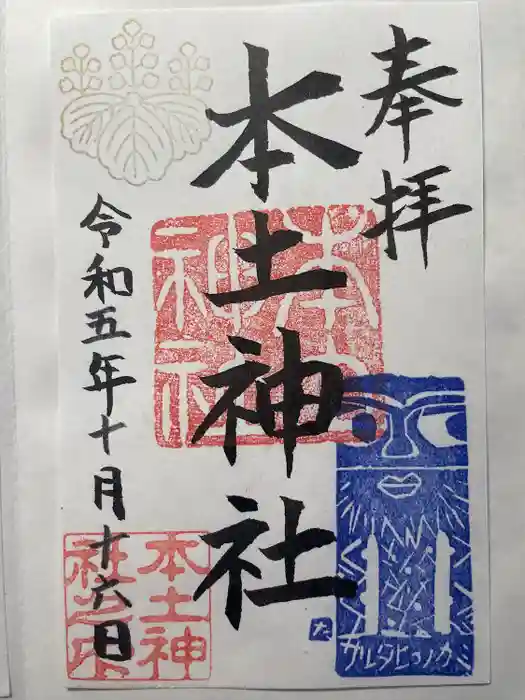 奉拝
本土神社
令和五年十月十六日
本土神社
本土神社之印
サルタヒコノカミ
た